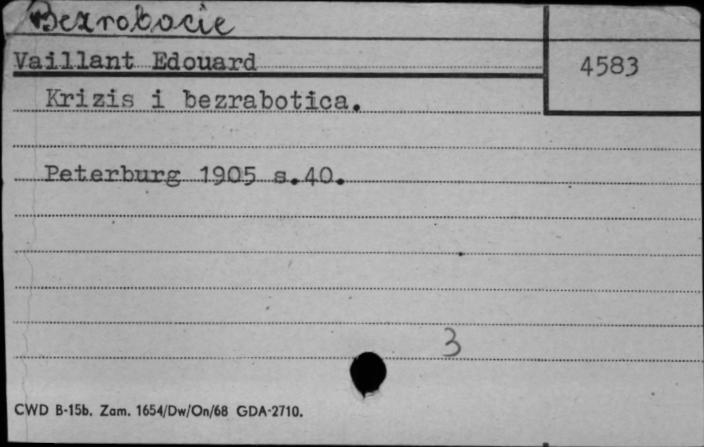 Bezrobocie
Vaillant Edouard
4583
Krizis i bezrabotica.
Peterburg 1905 s.40.
3
CWD B-15b. Zam. 1654/Dw/On/68 GDA-2710.